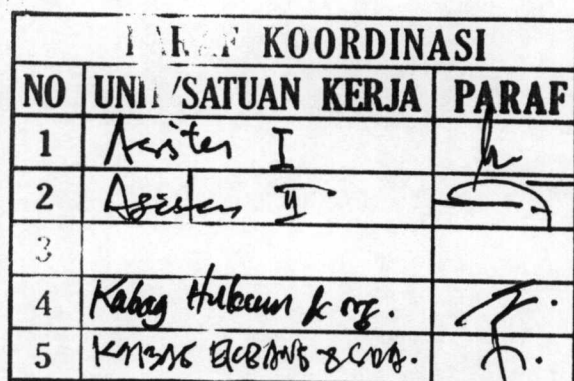 PARAF KOORDINASI
NO UNIT/SATUAN KERJA PARAF
1 Asisten I
2 Asisten II
3
4 Kabag Hukum & org.
5 KABAG EKBANG & SDA.